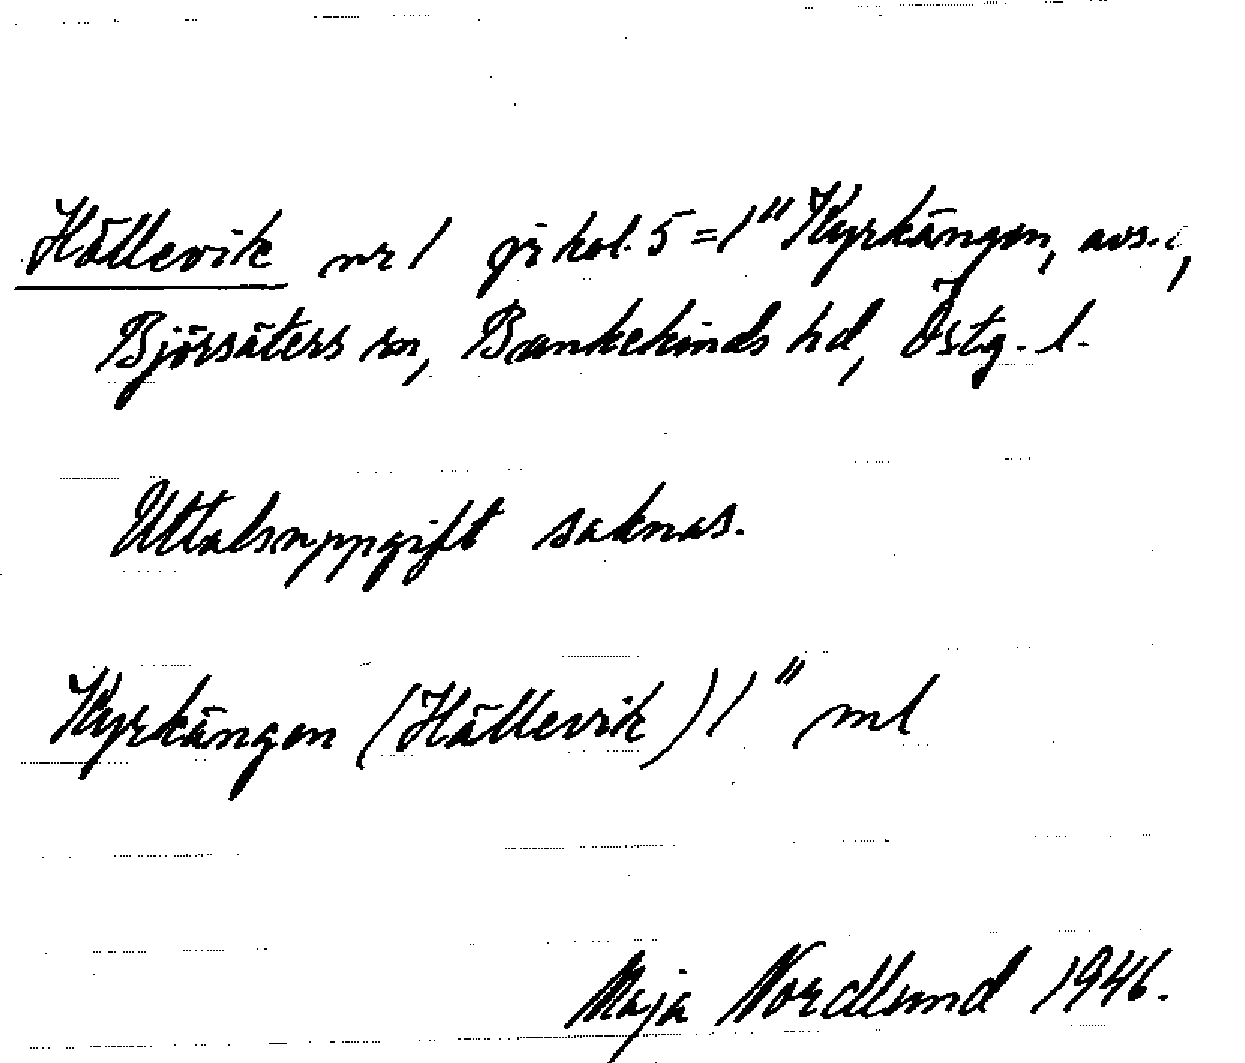 Hällevik nr 1 gi kol. 5 = 1" Kyrkängen, avs. i,
Björsäters sn, Bankekinds hd, Östg. l.
Uttalsuppgift saknas.
Kyrkängen (Hällevik) 1" ml
Maja Nordlund 1946.